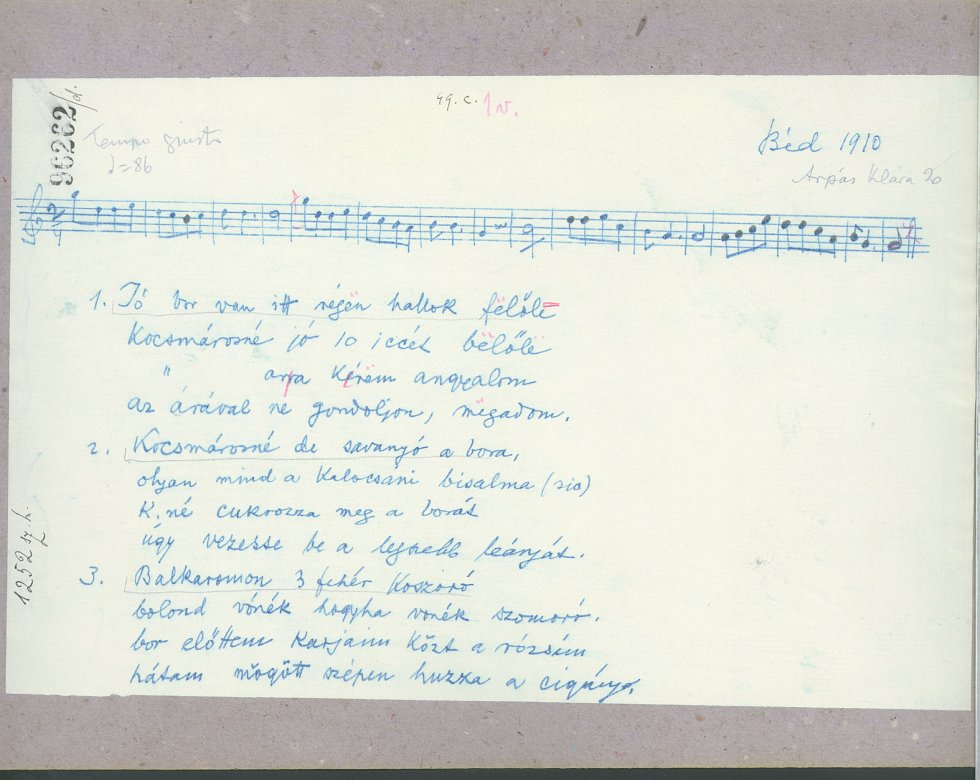 49. c. 1v.
96262/d.
Tempo giusto
♩=86
Béd 1910
Arpás Klára 20
2/4
1. Jó bor van itt régën hallok fëlőlë
Kocsmárosné jó 10 iccét bëlőlë
" arra kérëm angyalom
az árával ne gondoljon, mëgadom.
2. Kocsmárosné de savanyó a bora,
olyan mind a Kalocsáni bisalma (sic)
K.né cukrozza meg a borát
úgy vezesse be a legszebb leányát.
3. Balkaromon 3 fehér Koszoró
bolond vónék hogyha vónék szomoró.
bor előttem Karjaim közt a rózsám
hátam mögött szépen huzza a cigány.
1252 sz. h.